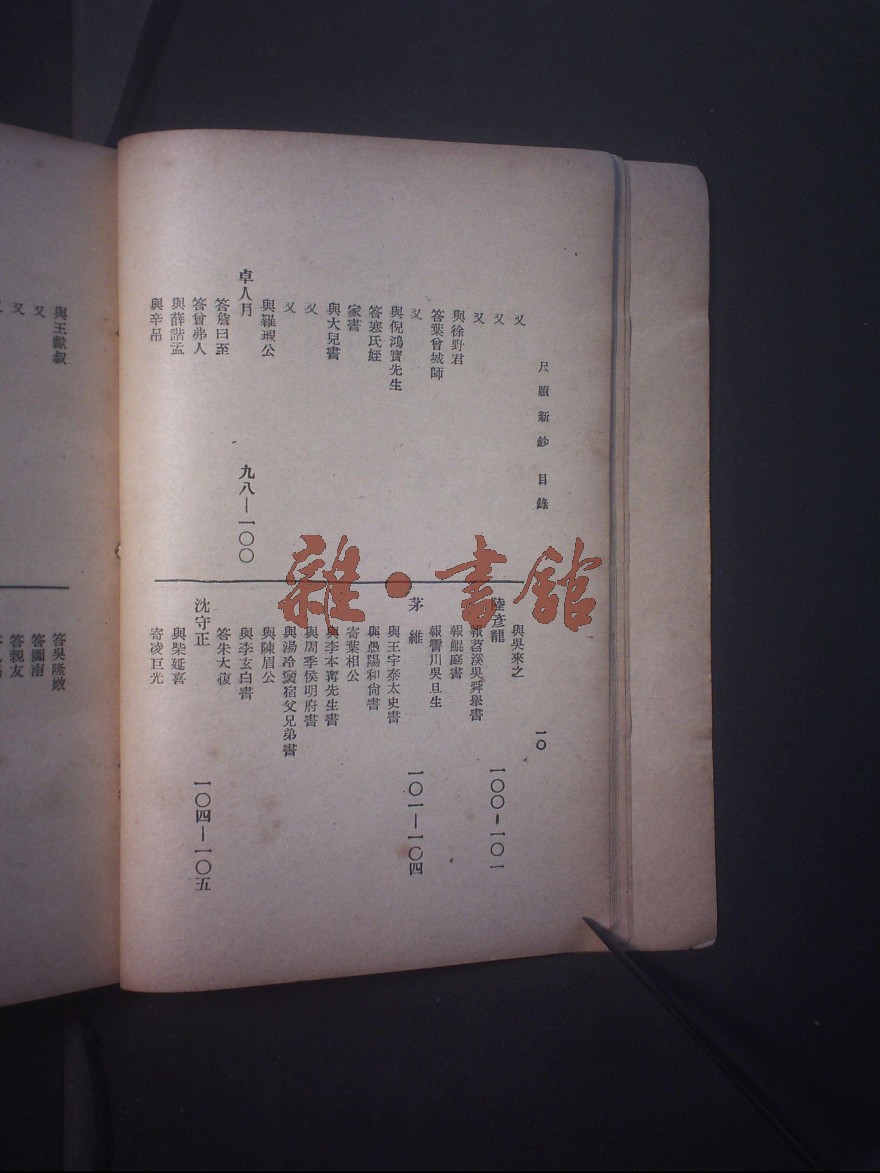 尺牘新鈔 目錄
一〇
又
又
又
與徐野君
答葉曾城師
又
與倪鴻寶先生
答寒氏姪
家書
與大兒書
又
又
與羅瑕公
卓人月 九八—一〇〇
答詹曰至
答曾弗人
與薛諧孟
與辛吊
與吳來之
陸彥龍 一〇〇—一〇一
報苕溪吳舜舉書
報鯤庭書
報霅川吳旦生
茅維 一〇一—一〇四
與王宇泰太史書
與愚陽和尙書
寄葉相公
與李本寗先生書
與周季侯明府書
與湯冷宿父兄弟書
與陳眉公
與李玄白書
答朱大復
沈守正 一〇四—一〇五
與柴延喜
寄凌巨光
與王獻叔
又
又
答吳隆媺
答圖南
答親友
雜·書館